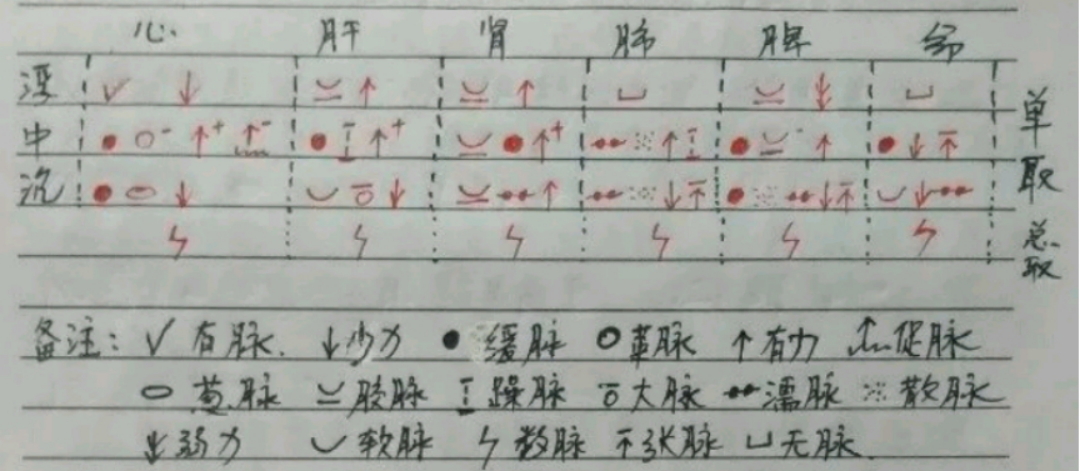 心 肝 肾 肺 脾 命
浮 √ ↓ ↑ ↑ 单
中 ● ○- ↑+ ● ↑+ ● ↑+ ↑ ● ↑ ● ↓ 取
沉 ● ↓ ↓ ↑ ↓ ● ↓ ↓
总取
备注: √ 有脉. ↓少力 ● 缓脉 ○革脉 ↑有力 促脉
葱脉 胶脉 躁脉 大脉 濡脉 散脉
弱力 软脉 数脉 张脉 无脉.